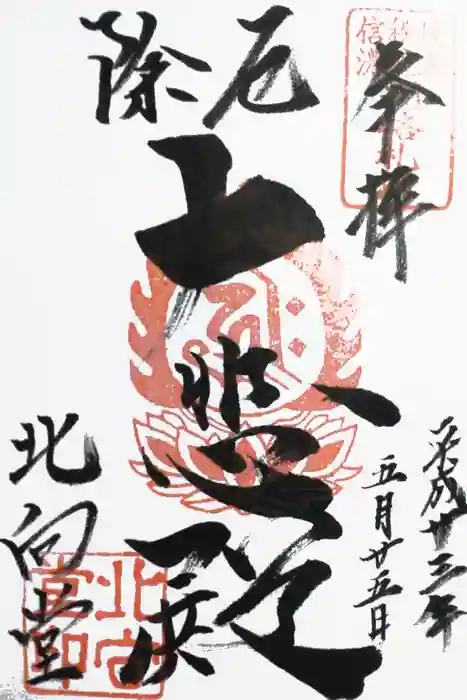 奉拝
平成廿三年
五月廿五日
厄除
大悲殿
北向堂
北向
堂印
信濃